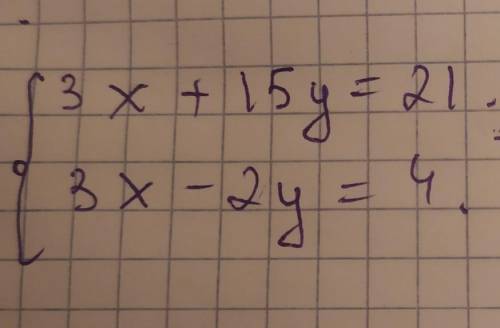 3x + 15y = 21
3x - 2y = 4.